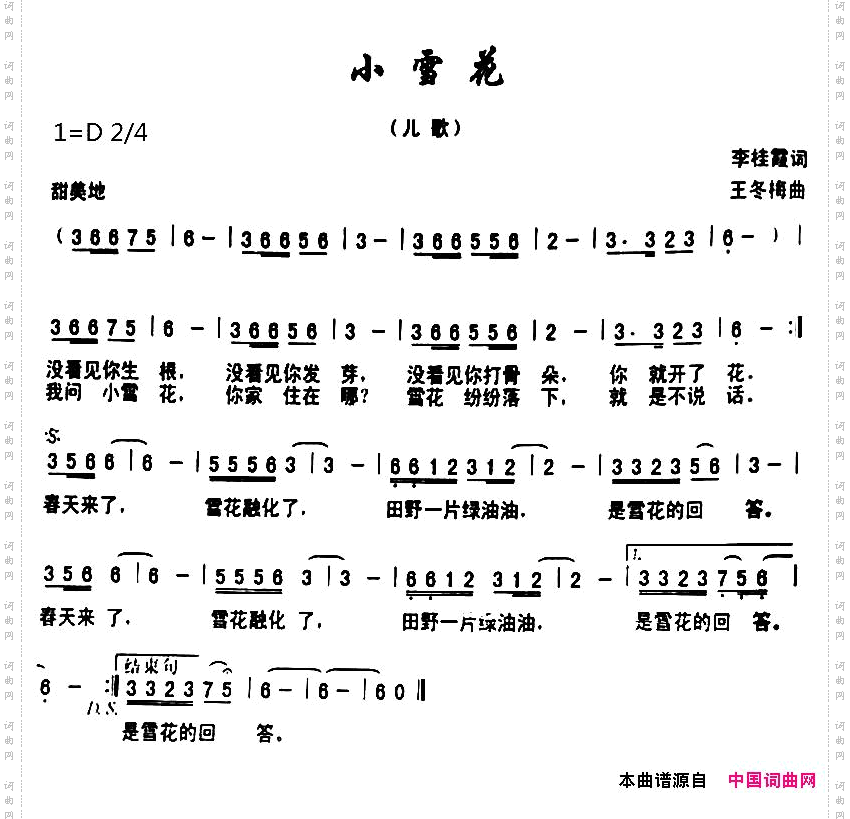 小雪花
（儿歌）
1=D 2/4
李桂霞词
甜美地
王冬梅曲
（3 6 6 7 5 | 6 - | 3 6 6 5 6 | 3 - | 3 6 6 5 5 6 | 2 - | 3. 3 2 3 | 6 - ）|
3 6 6 7 5 | 6 - | 3 6 6 5 6 | 3 - | 3 6 6 5 5 6 | 2 - | 3. 3 2 3 | 6 - :|
没看见你生 根， 没看见你发 芽， 没看见你打骨 朵， 你 就开了 花．
我问 小雪 花， 你家 住在 哪？ 雪花 纷纷落 下， 就 是不说 话．
S.
3 5 6 6 | 6 - | 5 5 5 6 3 | 3 - | 6 6 1 2 3 1 2 | 2 - | 3 3 2 3 5 6 | 3 - |
春天来了， 雪花融化了， 田野一片绿油油， 是雪花的回 答。
1.
3 5 6 6 | 6 - | 5 5 5 6 3 | 3 - | 6 6 1 2 3 1 2 | 2 - | 3 3 2 3 7 5 6 |
春天来 了， 雪花融化 了， 田野一片绿油油． 是雪花的回 答。
结束句
6 - :| 3 3 2 3 7 5 | 6 - | 6 - | 6 0 ||
D.S.
是雪花的回 答．
本曲谱源自 中国词曲网
词曲网